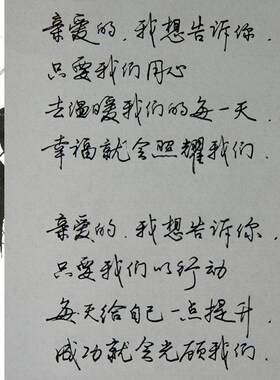 亲爱的.我想告诉你.
只要我们用心
去温暖我们的每一天.
幸福就会照耀我们.
亲爱的.我想告诉你.
只要我们以行动
每天给自己一点提升.
成功就会光顾我们.